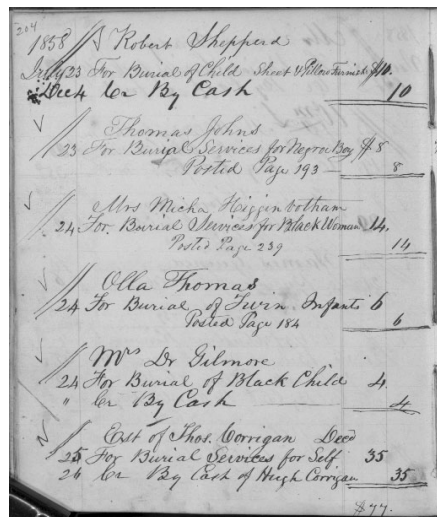 204
1858 Robert Shepperd
July 23 For Burial of Child Sheet & Pillow Furnish $10.
Dec 4 Cr By Cash 10
Thomas Johns
23 For Burial Services for Negro Boy $.8
Posted Page 193 8
Mrs Micha Higginbotham
24 For Burial Services for Black Woman 14.
Posted Page 239 14
Olla Thomas
24 For Burial of Twin Infants 6
Posted Page 184 6
Mrs Dr Gilmore
24 For Burial of Black Child 4
" Cr By Cash 4
Est of Thos. Corrigan Deed
25 For Burial Services for Self 35
26 Cr By Cash of Hugh Corrigan 35
$77.